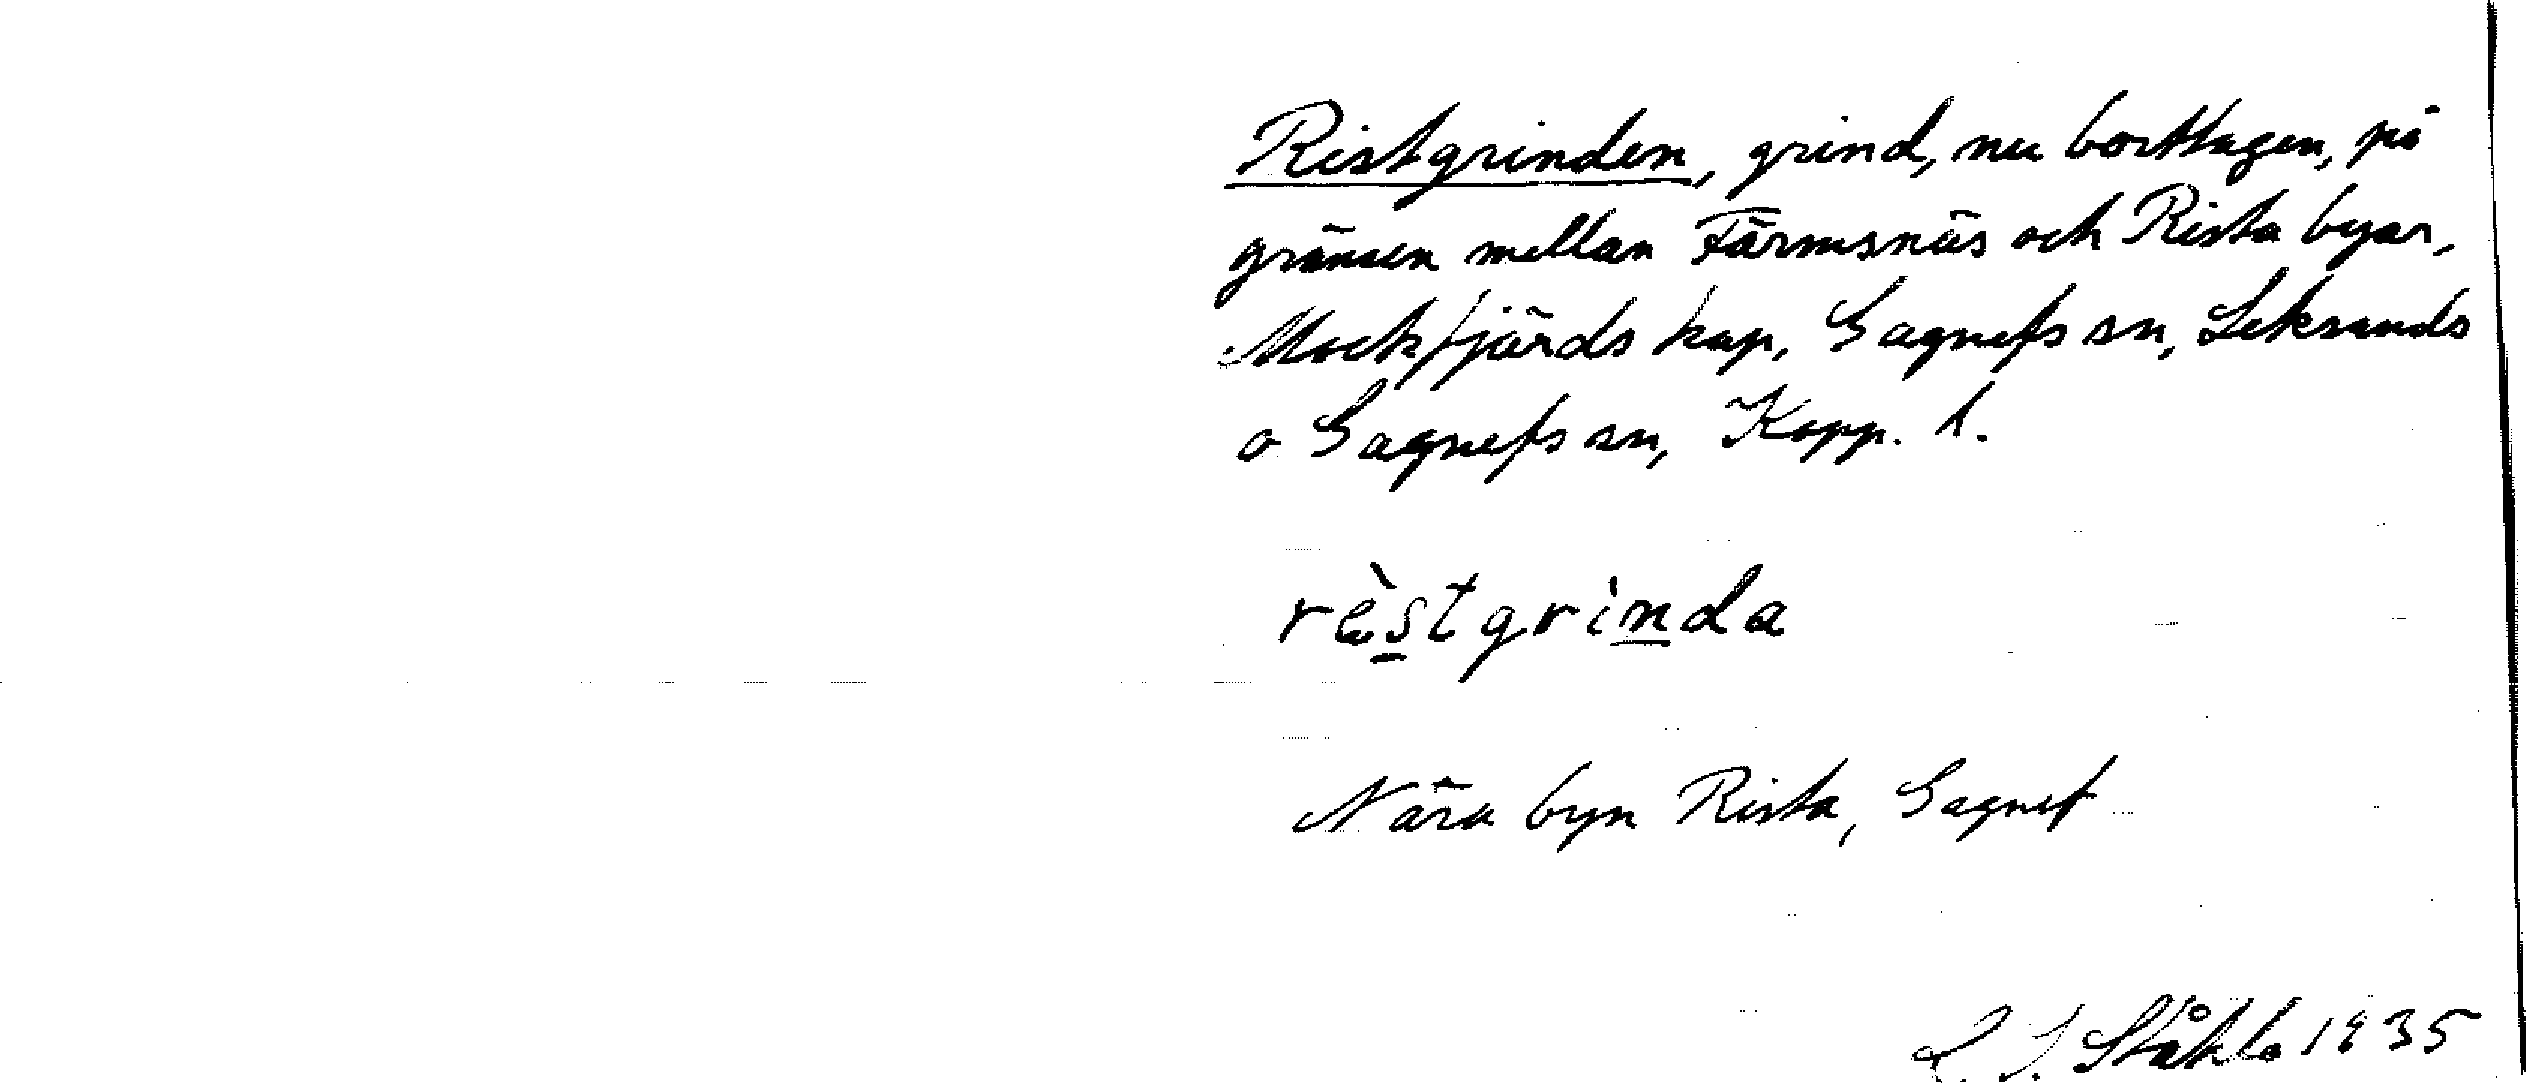 Ristgrinden, grind, nu borttagen, på
gränsen mellan Färmsnäs och Rista byar,
Mockfjärds kap, Gagnefs sn, Leksands
o Gagnefs sn, Kopp. l.
rèstgrinda
Nära byn Rista, Gagnef
Ståhle 1935